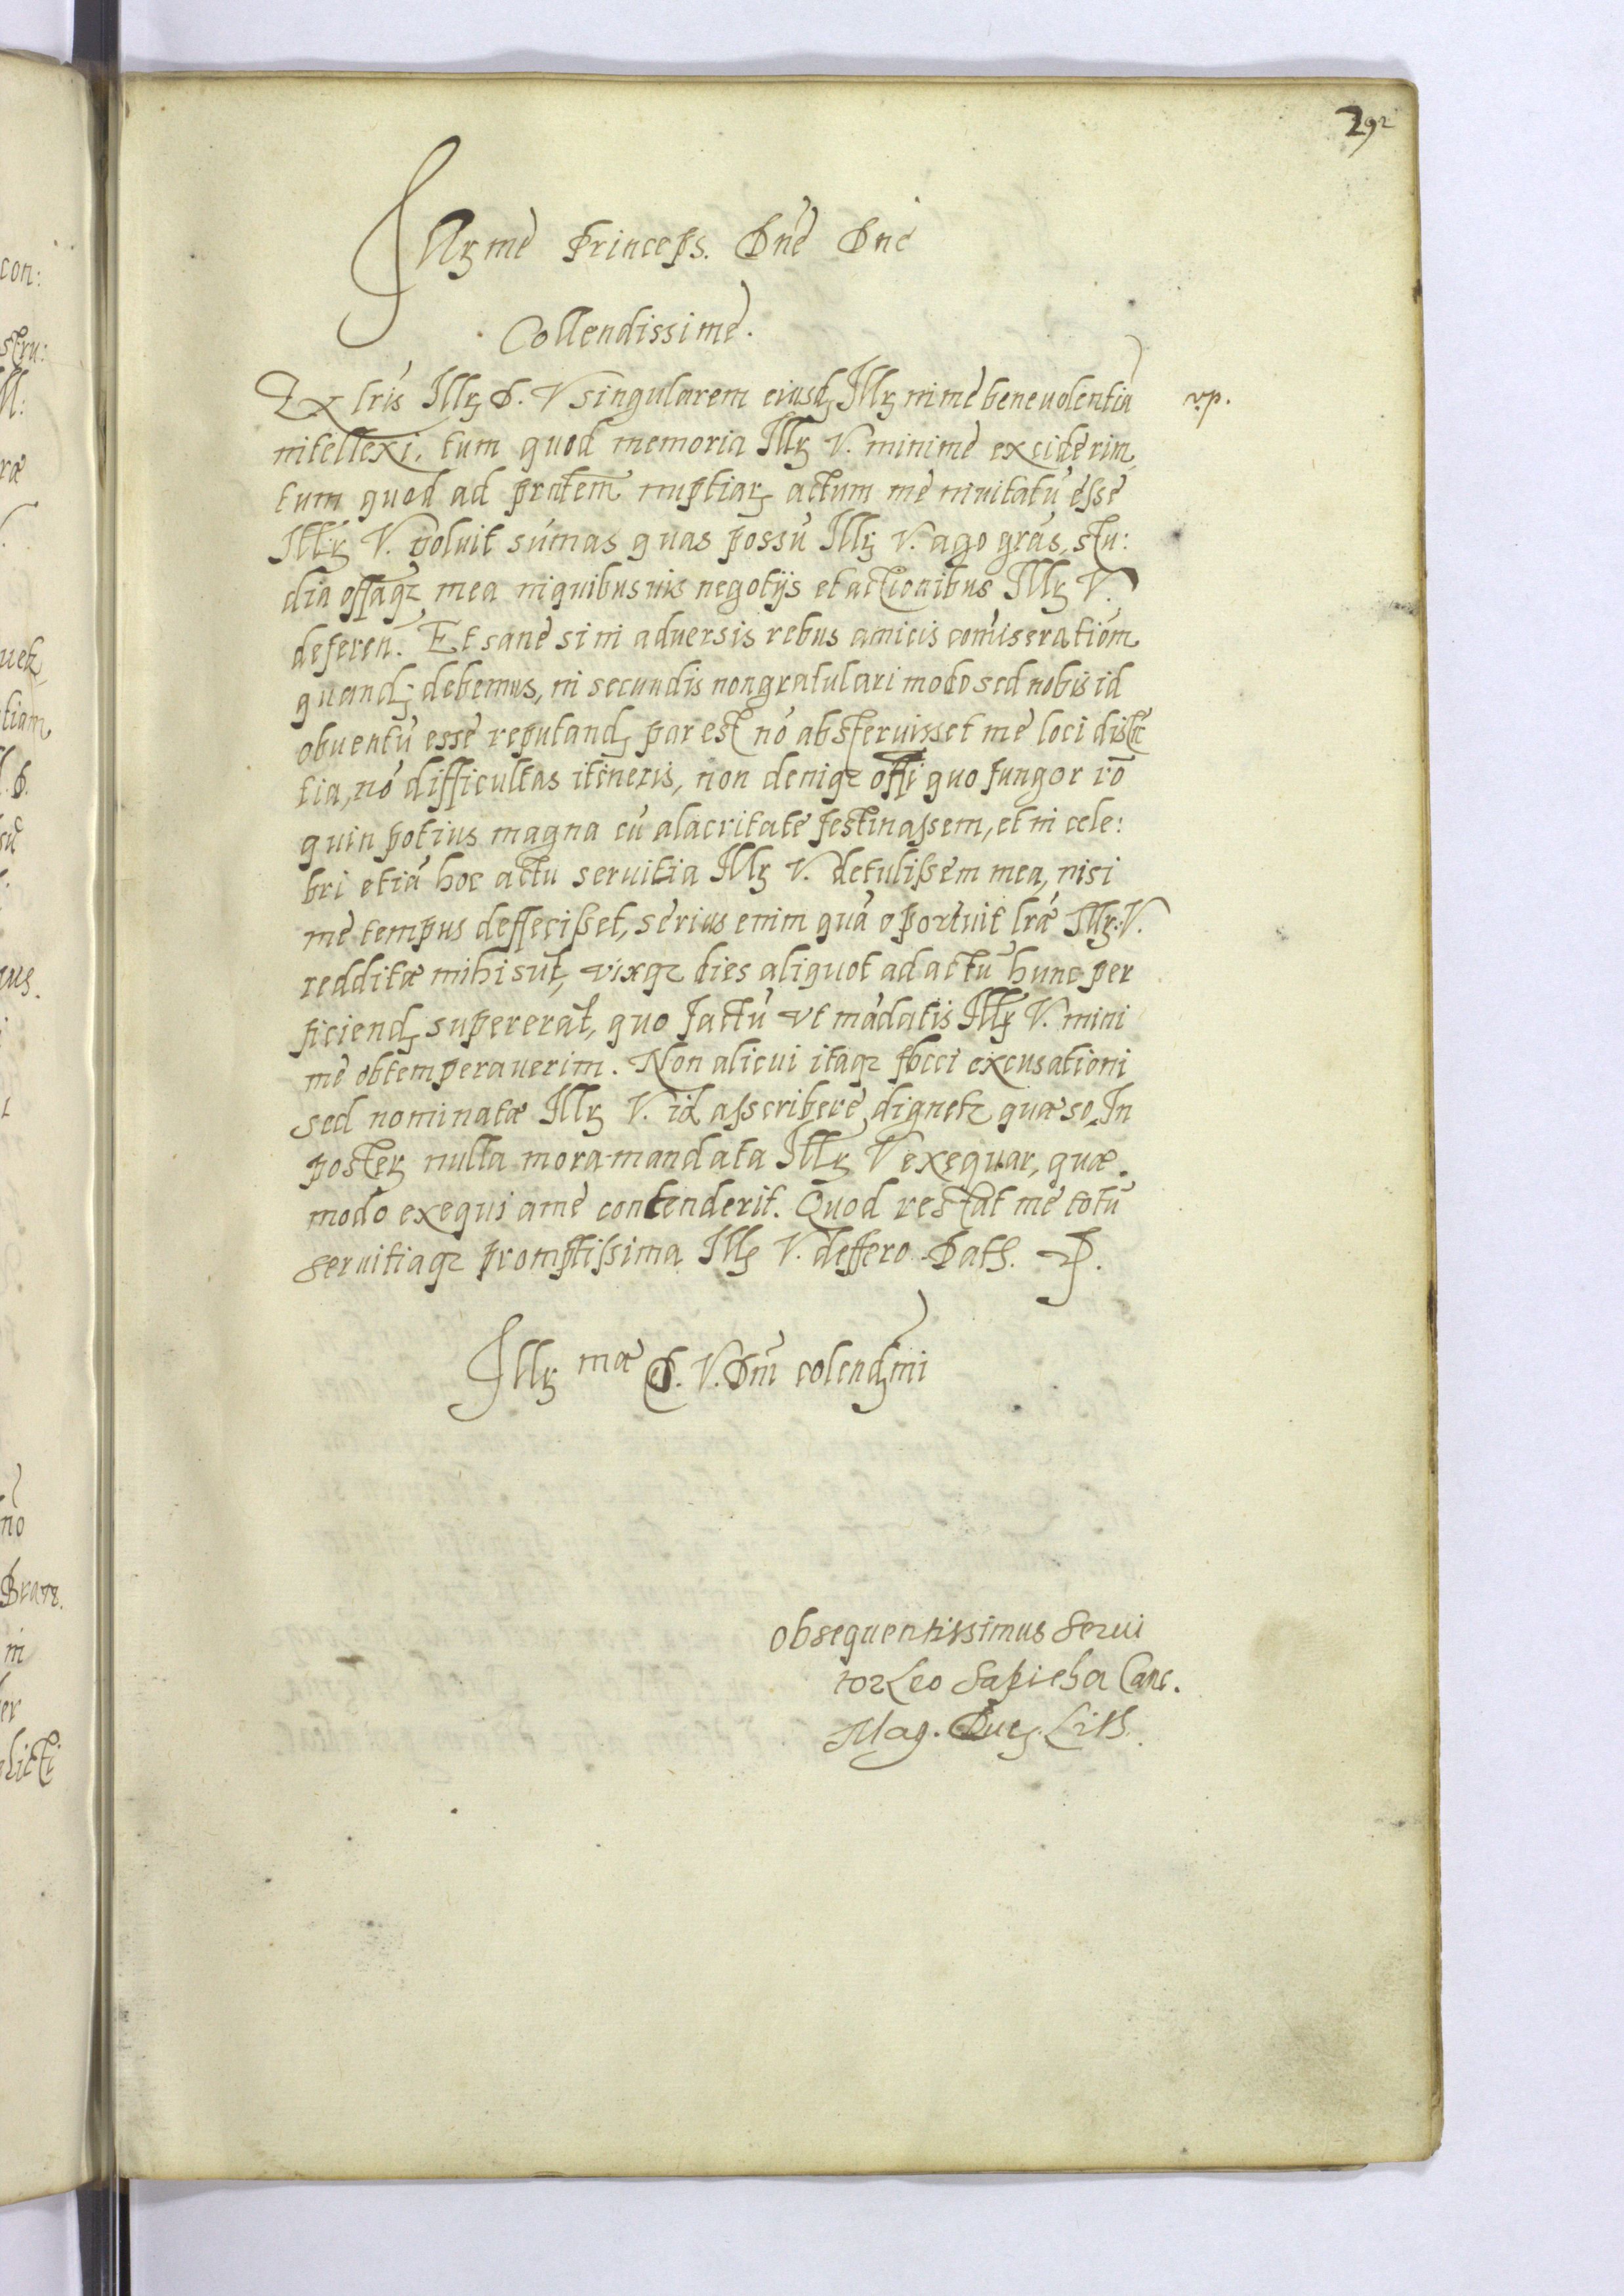 292
Illrme Princeps. Dne Dne
Collendissime.
Ex lris Illr D. V singularem eiusd Illr in me beneuolentiã vp.
intellexi, tum quod memoria Illr V. minime exciderim,
tum quod ad prntem nuptiar actum me inuitatũ esse
Illr V. voluit sũmas quas possũ Illr V. ago grãs, stu:
dia offaq mea in quibusuis negotijs et actionibus Illr V.
deferen. Et sane si in aduersis rebus amicis com̃iserationem
quand debemus, in secundis non gratulari modo sed nobis id
obuentũ esse reputand par est nõ abs­teruisset me loci distã
tia, nõ difficultas itineris, non deniq offi quo fungor rõ
quin potius magna cũ alacritate festinassem, et in cele:
bri etiã hoc actu seruitia Illr V. detulissem mea, nisi
me tempus deffecisset, serius enim quã oportuit lræ Illr. V.
redditæ mihi sũt, vixq dies aliquot ad actũ hunc per
ficiend supererat, quo factũ vt mãdatis Illr V. mini
me obtemperauerim. Non alicui itaq socci excusationi
sed nominatæ Illr V. id asscribere dignetr quæso, In
poster nulla mora mandata Illr V exequar, quæ
modo exequi a me contenderit. Quod restat me totũ
seruitiaq promptissima Illr V. deffero. Dats. P.
Illr mæ D. V. Dni colendmi
Obsequentissimus Serui
tor Leo Sapieha Canc.
Mag. Duc. Lith.